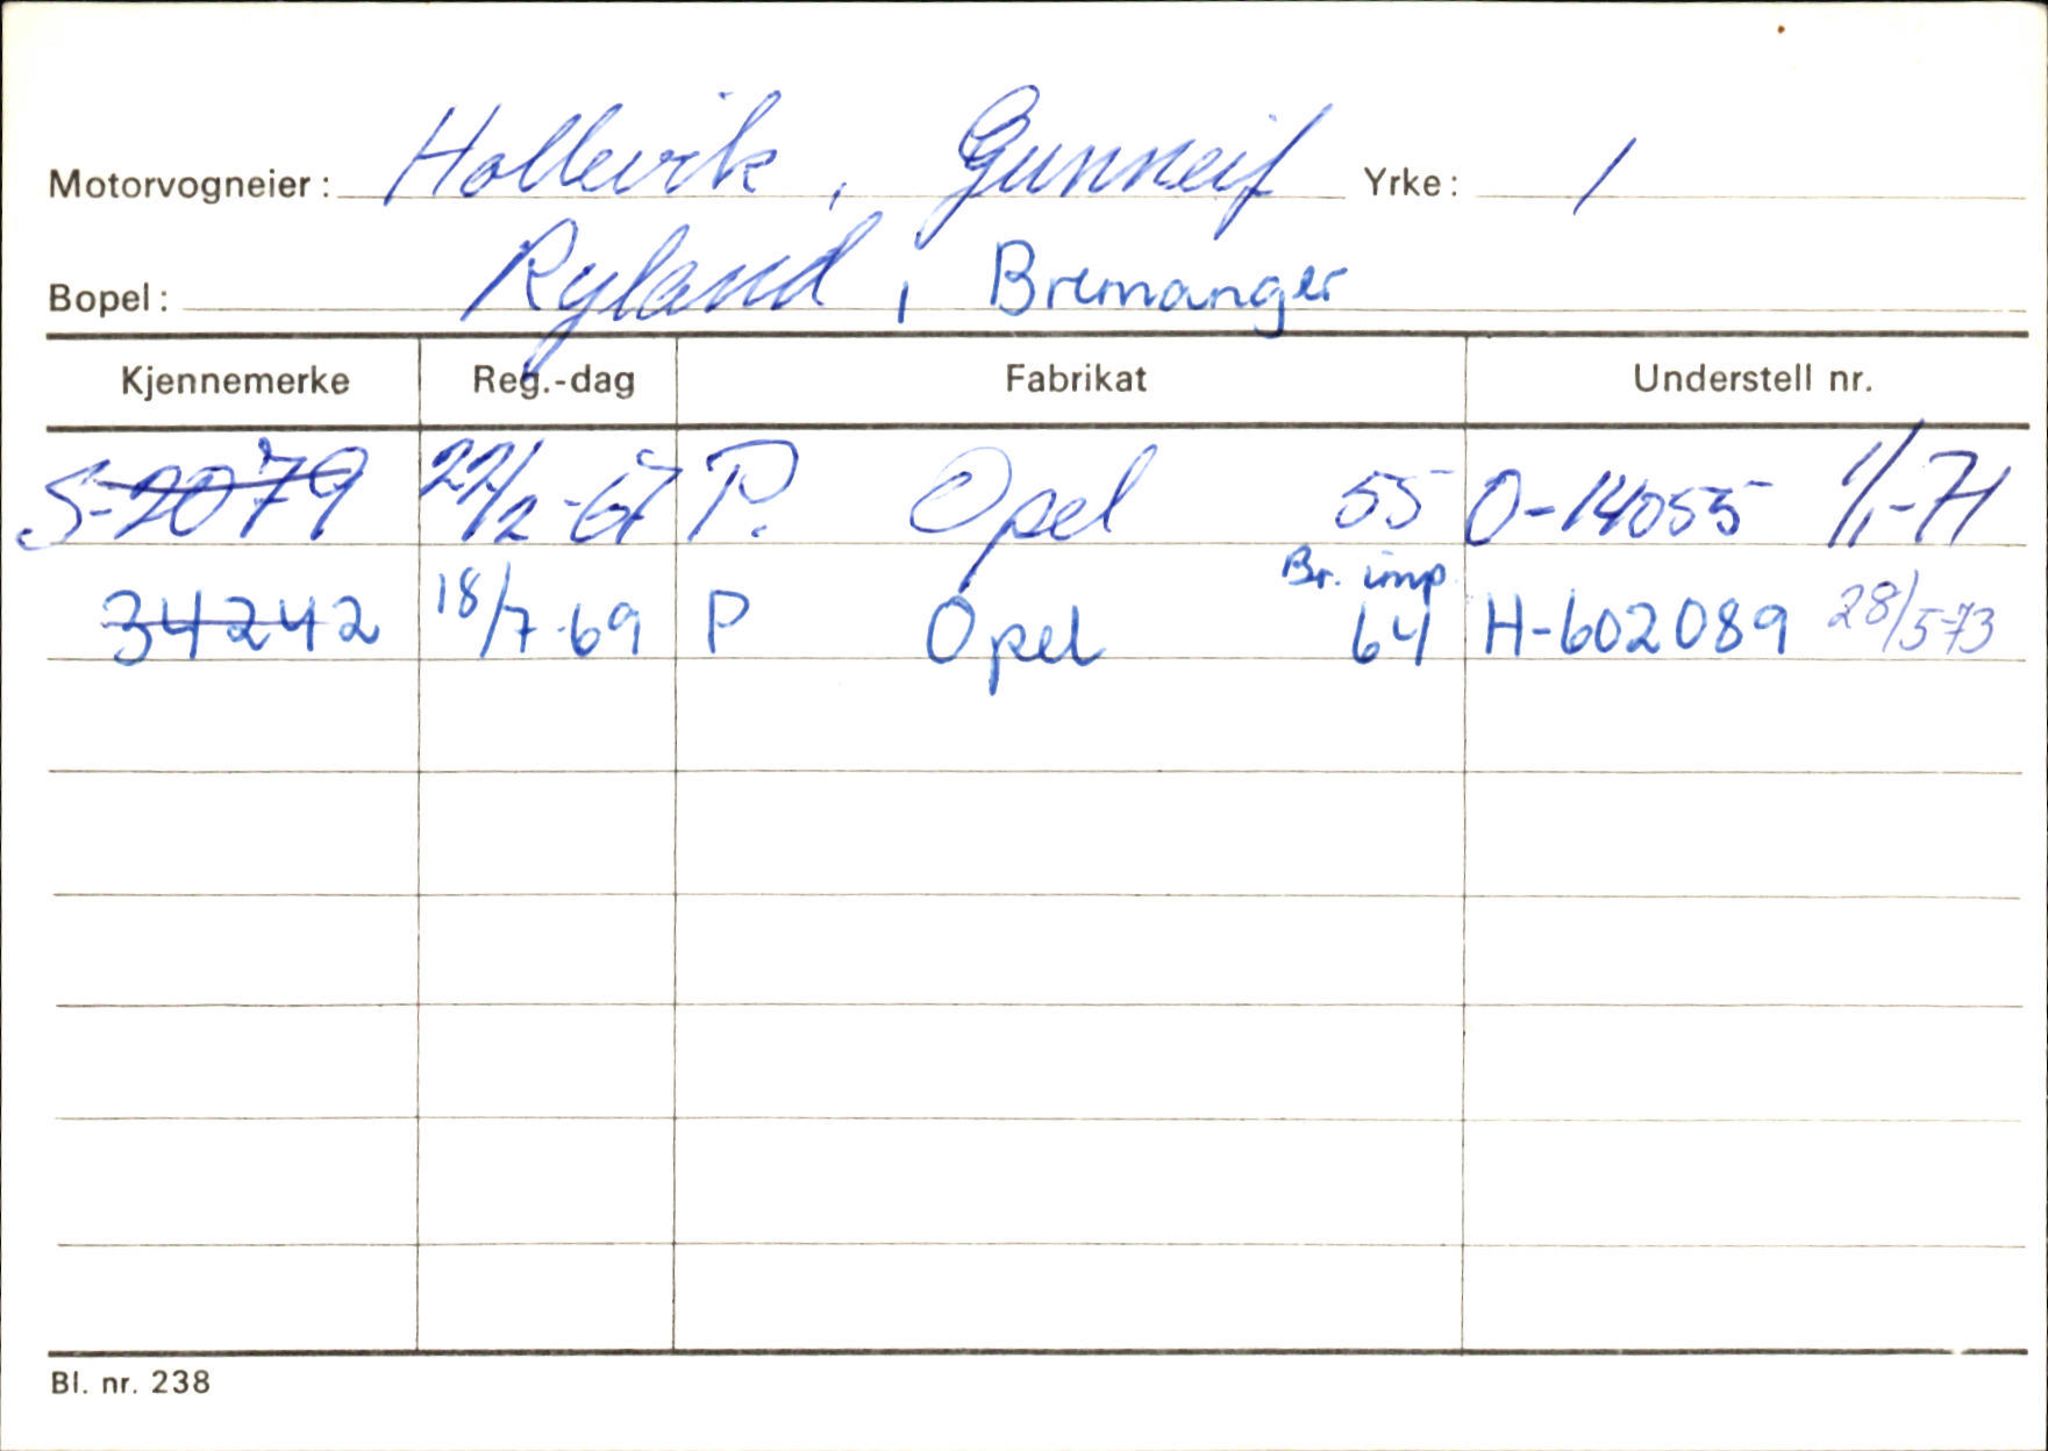 Motorvogneier: Hollevik, Gunneif Yrke: 1
Bopel: Ryland, Bremanger
Kjennemerke Reg.-dag Fabrikat Understell nr.
S-2079 22/2-67 P. Opel 55 0-14055 1/1-71
Br. imp.
34242 18/7-69 P Opel 64 H-602089 28/5-73
Bl. nr. 238